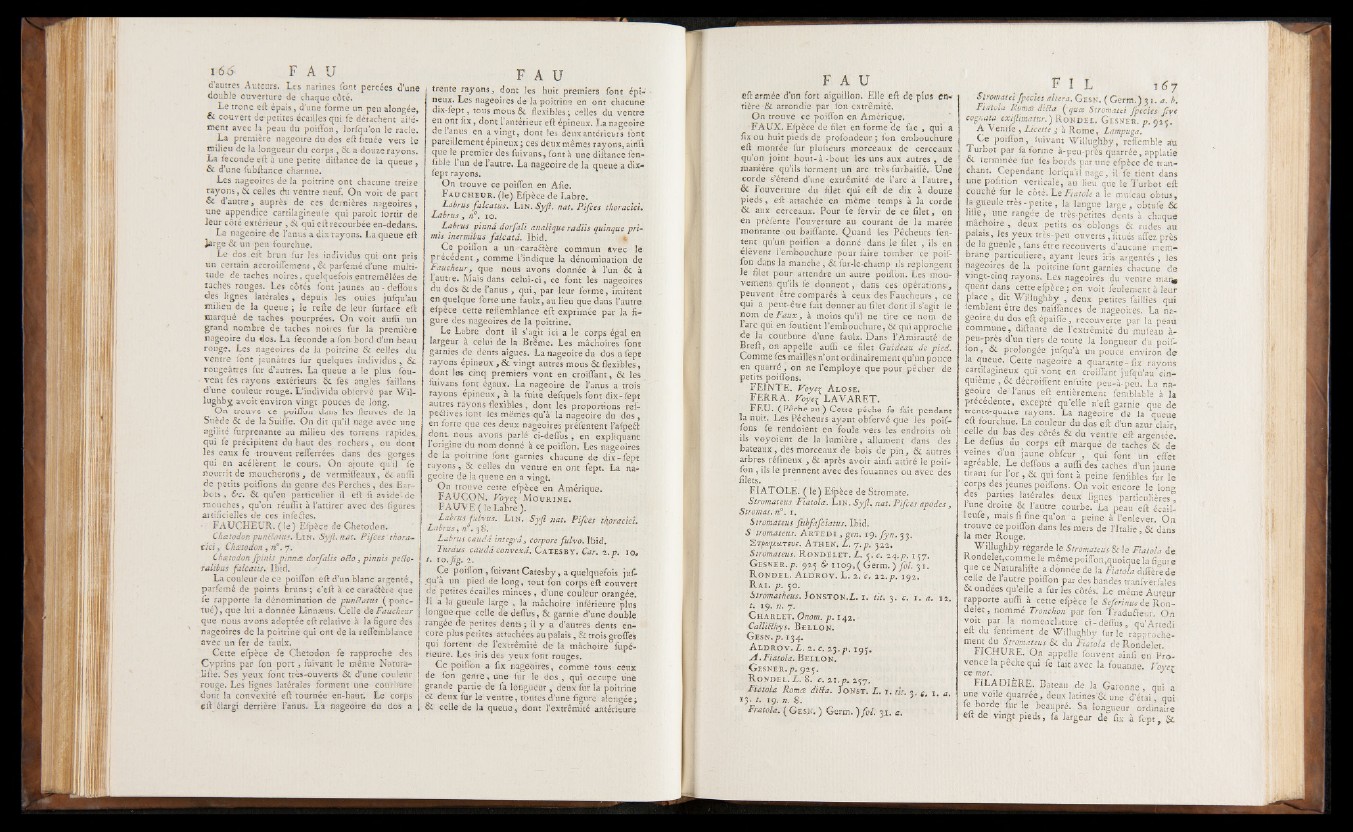 166 F A U
d'autres Auteurs. Les narines font percées d'une
double ouverture de chaque côté.
Le tronc eft épais, d'une forme un peu alongée,
& couvert de petites écailles qui fe détachent aifé-
ment avec la peau du poiffon, lorfqu'on le racle.
La première nageoire du dos eft fituée vers le
milieu de la longueur du corps, & a douze rayons.
La feconde eft à une petite diftance de la queue,
& d'une fubftance charnue.
Les nageoires de la poitrine ont chacune treize
rayons, & celles du ventre neuf. On voit de part
& d'autre, auprès de ces dernières nageoires,
une appendice cartilagineufe qui paroît fortir de
leur côté extérieur, & qui eft recourbée en-dedans.
La nageoire de l'anus a dix rayons. La queue eft
large & un peu fourchue.
Le dos eft brun fur les individus qui ont pris
un certain accroiffement, & parfemé d'une multi-
tude de taches noires, quelquefois entremêlées de
taches rouges. Les côtés font jaunes au-deffous
des lignes latérales, depuis les ouies jufqu'au
milieu de la queue; le refte de leur furface eft
marqué de taches pourprées. On voit auffi un
grand nombre de taches noires fur la première
nageoire du dos. La feconde a fon bord d'un beau
rouge. Les nageoires de la poitrine & celles du
ventre font jaunâtres fur quelques individus, &
rougeâtres fur d'autres. La queue a le plus fou-
vent fes rayons extérieurs & fes angles faillans
d'une couleur rouge. L'individu obfervé par Wil-
lughby avoit environ vingt pouces de long.
On trouve ce poiffon dans les fleuves de la
Suède & de la Suiffe. On dit qu'il nage avec une
agilité furprenante au milieu des torrens rapides,
qui fe précipitent du haut des rochers, ou dont
les eaux fe trouvent refferrées dans des gorges
qui en accélèrent le cours. On ajoute qu'il fe
nourrit de moucherons, de vermiffeaux, & auffi
de petits poiffons du genre des Perches, des Bar-
bots, &c. & qu'en particulier il eft fi avide de
mouches, qu'on réuffit à l'attirer avec des figures
artificielles de ces infectes.
FAUCHEUR. (le) Efpèce de Chetodon.
Chætodon punctatus. LIN. Syft. nat. Pifces thora-
cici, Chætodon, n°. 7.
Chætodon fpinis pinnæ dorfalis octo, pinnis pecto-
ralibus falcatis. Ibid.
La couleur de ce poiffon eft d'un blanc argenté,
parfemé de points bruns; c'eft à ce caractère que
fe rapporte la dénomination de punctatus (ponc-
tué), que lui a donnée Linnæus. Celle de Faucheur
que nous avons adoptée eft relative à la figure des
nageoires de la poitrine qui ont de la reffemblance
avec un fer de faulx.
Cette efpèce de Chetodon fe rapproche des
Cyprins par fon port, fuivant le même Natura-
lifte. Ses yeux font très-ouverts & d'une couleur
rouge. Les lignes latérales forment une courbure
dont la convexité eft tournée en-haut. Le corps
eft élargi derrière l'anus. La nageoire du dos a
F A U
trente rayons, dont les huit premiers font épi-
neux. Les nageoires de la poitrine en ont chacune
dix-fept, tous mous & flexibles; celles du ventre
en ont fix, dont l'antérieur eft épineux. La nageoire
de l'anus en a vingt, dont les deux antérieurs font
pareillement épineux; ces deux mêmes rayons, ainfi
que le premier des fuivans, font à une diftance fen-
fible l'un de l'autre. La nageoire de la queue a dix-
fept rayons.
On trouve ce poiffon en Afie.
FAUCHEUR. (le) Efpèce de Labre.
Labrus falcatus. LIN. Syft. nat. Pifces thoracici.
Labrus, n°. 10.
Labrus pinnâ dorfali analique radiis quinque pri-
mis inermibus falcatâ. Ibid.
Ce poiffon a un caractère commun avec le
précédent, comme l'indique la dénomination de
Faucheur, que nous avons donnée à l'un & à
l'autre. Mais dans celui-ci, ce font les nageoires
du dos & de l'anus, qui, par leur forme, imitent
en quelque forte une faulx, au lieu que dans l'autre
efpèce cette reffemblance eft exprimée par la fi-
gure des nageoires de la poitrine.
Le Labre dont il s'agit ici a le corps égal en
largeur à celui de la Brême. Les mâchoires font
garnies de dents aigues. La nageoire du dos a fept
rayons épineux, & vingt autres mous & flexibles,
dont les cinq premiers vont en croiffant, & les
fuivans font égaux. La nageoire de l'anus a trois
rayons épineux, à la fuite defquels font dix-fept
autres rayons flexibles, dont les proportions ref-
pectives font les mêmes qu'à la nageoire du dos,
en forte que ces deux nageoires préfentent l'afpect
dont nous avons parlé ci-deffus, en expliquant
l'origine du nom donné à ce poiffon. Les nageoires
de la poitrine font garnies chacune de dix-fept
rayons, & celles du ventre en ont fept. La na-
geoire de la queue en a vingt.
On trouve cette efpèce en Amérique.
FAUCON. Voyez MOURINE.
FAUVE (le Labre).
Labrus fulvus. LIN. Syft nat. Pifces thoracici.
Labrus, n°. 38.
Labrus caudâ integrâ, corpore fulvo. Ibid.
Turdus caudâ convexâ. CATESBY. Car. 2. p. 10,
t. 10. fig. 2.
Ce poiffon, fuivant Catesby, a quelquefois juf-
qu'à un pied de long, tout fon corps eft couvert
de petites écailles minces, d'une couleur orangée.
Il a la gueule large, la mâchoire inférieure plus
longue que celle de deffus, & garnie d'une double
rangée de petites dents; il y a d'autres dents en-
core plus petites attachées au palais, & trois groffes
qui fortent de l'extrémité de la mâchoire fupé-
rieure. Les iris des yeux font rouges.
Ce poiffon a fix nageoires, comme tous ceux
de fon genre, une fur le dos, qui occupe une
grande partie de fa longueur, deux fur la poitrine
& deux fur le ventre, toutes d'une figure alongée;
& celle de la queue, dont l'extrémité antérieure
F A U
eft armée d'un fort aiguillon. Elle eft de plus en-
tière & arrondie par fon extrémité.
On trouve ce poiffon en Amérique.
FAUX. Efpèce de filet en forme de fac, qui a
fix ou huit pieds de profondeur; fon embouchure
eft montée fur plufieurs morceaux de cerceaux
qu'on joint bout-à-bout les uns aux autres, de
manière qu'ils forment un arc très-furbaiffé. Une
corde s'étend d'une extrémité de l'arc à l'autre,
& l'ouverture du filet qui eft de dix à douze
pieds, eft attachée en même temps à la corde
& aux cerceaux. Pour fe fervir de ce filet, on
en préfente l'ouverture au courant de la marée
montante ou baiffante. Quand les Pêcheurs fen-
tent qu'un poiffon a donné dans le filet, ils en
élèvent l'embouchure pour faire tomber ce poif-
fon dans la manche, & fur-le-champ ils replongent
le filet pour attendre un autre poiffon. Les mou-
vemens qu'ils fe donnent, dans ces opérations,
peuvent être comparés à ceux des Faucheurs, ce
qui a peut-être fait donner au filet dont il s'agit le
nom de Faux, à moins qu'il ne tire ce nom de
l'arc qui en foutient l'embouchure, & qui approche
de la courbure d'une faulx. Dans l'Amirauté de
Breft, on appelle auffi ce filet Guideau de pied.
Comme fes mailles n'ont ordinairement qu'un pouce
en quarré, on ne l'employe que pour pêcher de
petits poiffons.
FEINTE. Voyez ALOSE.
FERRA. Voyez LAVARET.
FEU. (Pêche au) Cette pêche fe fait pendant
la nuit. Les Pêcheurs ayant obfervé que les poif-
fons fe rendoient en foule vers les endroits où
ils voyoient de la lumière, allument dans des
bateaux, des morceaux de bois de pin, & autres
arbres réfineux, & après avoir ainfi attiré le poif-
fon, ils le prennent avec des fouannes ou avec des
filets.
FIATOLE. (le) Efpèce de Stromate.
Stromateus Fiatola. LIN. Syft. nat. Pifces apodes,
Stromat. n°. 1.
Stromateus fubfafciatus. Ibid.
Stromateus. ARTEDI, gen. 19. fyn. 33.
Στρωματευς. ATHEN. L. 7. p. 322.
Stromateus. RONDELET. L. 5. c. 24. p. 157.
GESNER. p. 925 & 1109, (Germ.) fol. 31.
RONDEL. ALDROV. L. 2. c. 22. p. 192.
RAI. p. 50.
Stromatheus. JONSTON. L. 1. tit. 3. c. 1. a. 12.
t. 19. n. 7.
CHARLET. Onom. p. 142.
Callicthys. BELLON.
GESN. p. 134.
ALDROV. L. 2. c. 23. p. 195.
A. Fiatola. BELLON.
GESNER. p. 925.
RONDEL. L. 8. c. 21. p. 257.
Fiatola Romæ dicta. JONST. L. 1. tit. 3. c. 1. a.
13. t. 19. n. 8.
Fratola. (GESN.) Germ.) fol. 31. a.
F I L 167
Stromatei fpecies altera. GESN. (Germ.) 31. a. b.
Fiatola Romæ dicta (quæ Stromatei fpecies five
cognata exiftimatur.) RONDEL. GESNER. p. 925.
A Venife, Licette; à Rome, Lampuga.
Ce poiffon, fuivant Willughby, reffemble au
Turbot par fa forme à-peu-près quarrée, applatie
& terminée fur fes bords par une efpèce de tran-
chant. Cependant lorfqu'il nage, il fe tient dans
une pofition verticale, au lieu que le Turbot eft
couché fur le côté. Le Fiatole a le mufeau obtus,
la gueule très-petite, la langue large, obtufe &
liffe, une rangée de très-petites dents à chaque
mâchoire, deux petits os oblongs & rudes au
palais, les yeux très-peu ouverts, fitués affez près
de la gueule, fans être recouverts d'aucune mem-
brane particulière, ayant leurs iris argentés; les
nageoires de la poitrine font garnies chacune de
vingt-cinq rayons. Les nageoires du ventre man-
quent dans cette efpèce; on voit feulement à leur
place, dit Willughby, deux petites faillies qui
femblent être des naiffances de nageoires. La na-
geoire du dos eft épaiffie, recouverte par la peau
commune, diftante de l'extrémité du mufeau à-
peu-près d'un tiers de toute la longueur du poif-
fon, & prolongée jufqu'à un pouce environ de
la queue. Cette nageoire a quarante-fix rayons
cartilagineux qui vont en croiffant jufqu'au cin-
quième, & décroiffent enfuite peu-à-peu. La na-
geoire de l'anus eft entièrement femblable à la
précédente, excepté qu'elle n'eft garnie que de
trente-quatre rayons. La nageoire de la queue
eft fourchue. La couleur du dos eft d'un azur clair,
celle du bas des côtés & du ventre eft argentée.
Le deffus du corps eft marqué de taches & de
veines d'un jaune obfcur, qui font un effet
agréable. Le deffous a auffi des taches d'un jaune
tirant fur l'or, & qui font à peine fenfibles fur le
corps des jeunes poiffons. On voit encore le long
des parties latérales deux lignes particulières,
l'une droite & l'autre courbe. La peau eft écail-
leufe, mais fi fine qu'on a peine à l'enlever. On
trouve ce poiffon dans les mers de l'Italie, & dans
la mer Rouge.
Willughby regarde le Stromateus & le Fiatola de
Rondelet, comme le même poiffon, quoique la figure
que ce Naturalifte a donnée de la Fiatola diffère de
celle de l'autre poiffon par des bandes tranfverfales
& ondées qu'elle a fur les côtés. Le même Auteur
rapporte auffi à cette efpèce le Seferinus de Ron-
delet, nommé Tronchon par fon Traducteur. On
voit par la nomenclature ci-deffus, qu'Artedi
eft du fentiment de Willughby fur le rapproche-
ment du Stromateus & du Fiatola de Rondelet.
FICHURE. On appelle fouvent ainfi en Pro-
vence la pêche qui fe fait avec la fouanne. Voyez
ce mot.
FILADIÈRE. Bateau de la Garonne, qui a
une voile quarrée, deux latines & une d'étai, qui
fe borde fur le beaupré. Sa longueur ordinaire
eft de vingt pieds, fa largeur de fix à fept, &